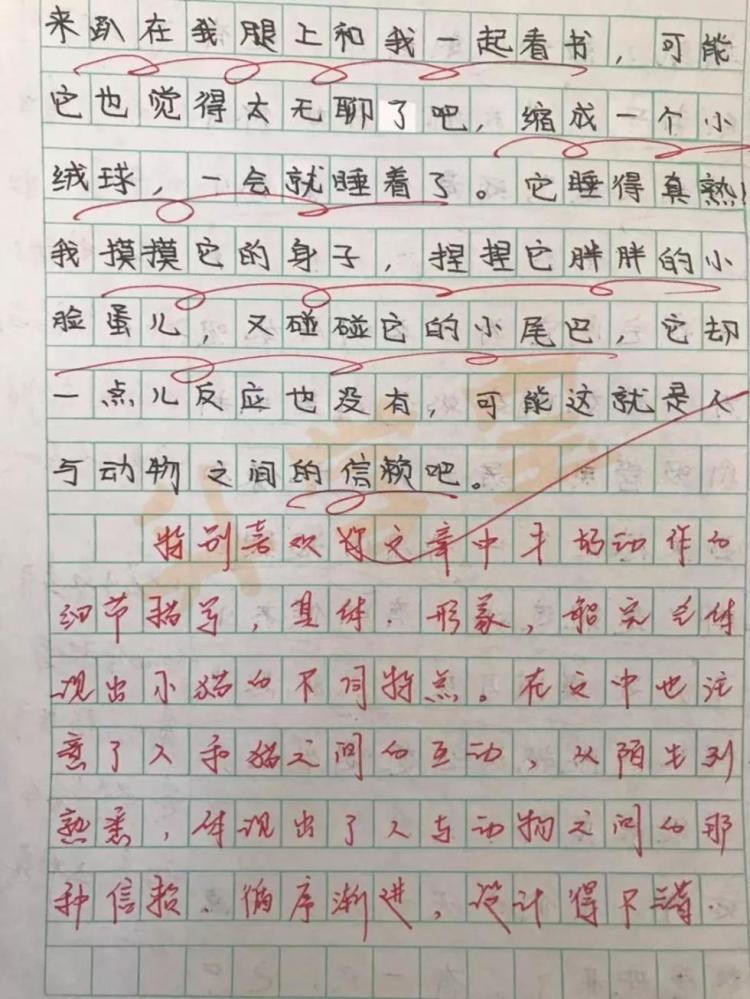 来趴在我腿上和我一起看书，可能
它也觉得太无聊了吧，缩成一个小
绒球，一会就睡着了。它睡得真熟！
我摸摸它的身子，捏捏它胖胖的小
脸蛋儿，又碰碰它的小尾巴，它却
一点儿反应也没有，可能这就是人
与动物之间的信赖吧。
特别喜欢你文章中的动作的
细节描写，具体、形象，能完全体
现出小猫的不同特点。在文中也注
意了人和猫之间的互动，从陌生到
熟悉，体现出了人与动物之间的那
种信赖、循序渐进，设计得不错.